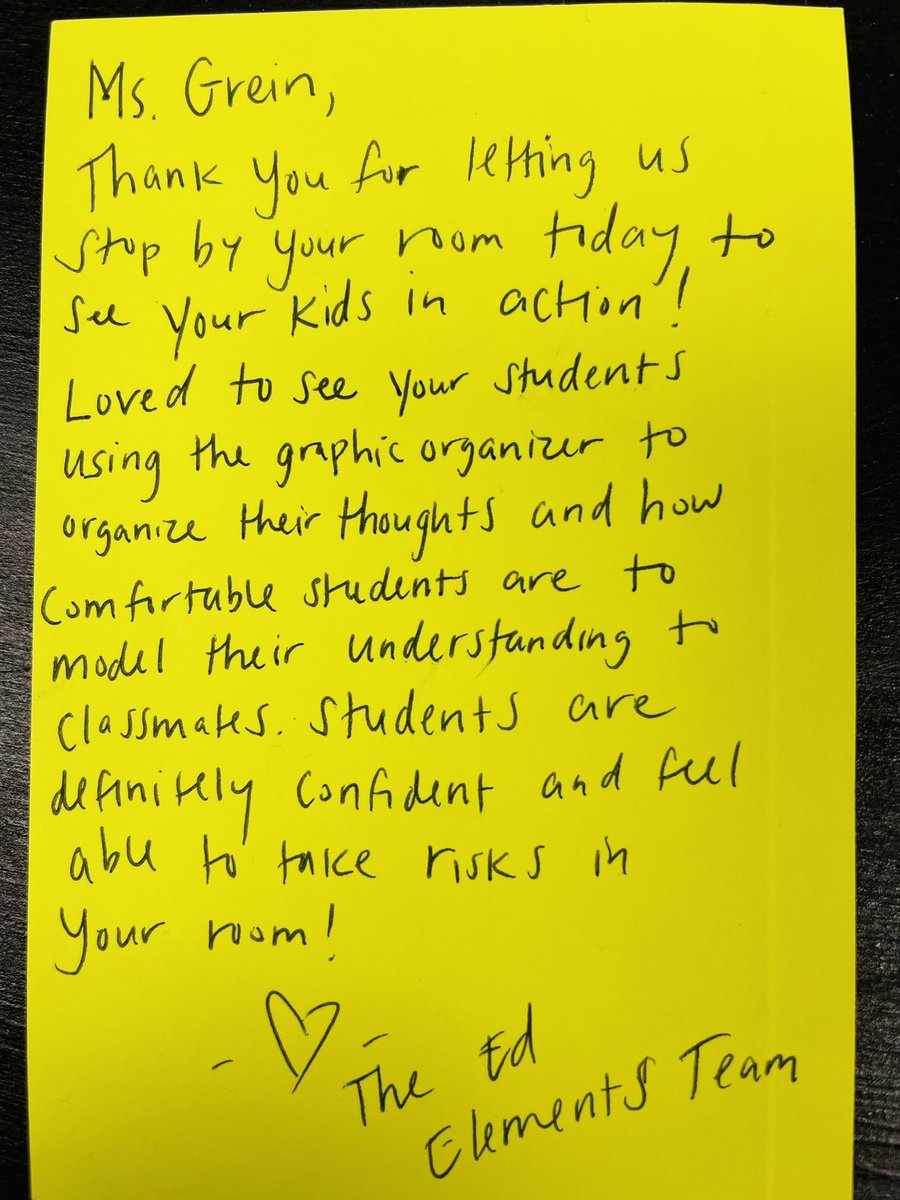 Ms. Grein,
Thank you for letting us
stop by your room today to
see your kids in action!
Loved to see your students
using the graphic organizer to
organize their thoughts and how
comfortable students are to
model their understanding to
classmates. Students are
definitely confident and feel
able to take risks in
your room!
- ♡ -
The Ed
Elements Team